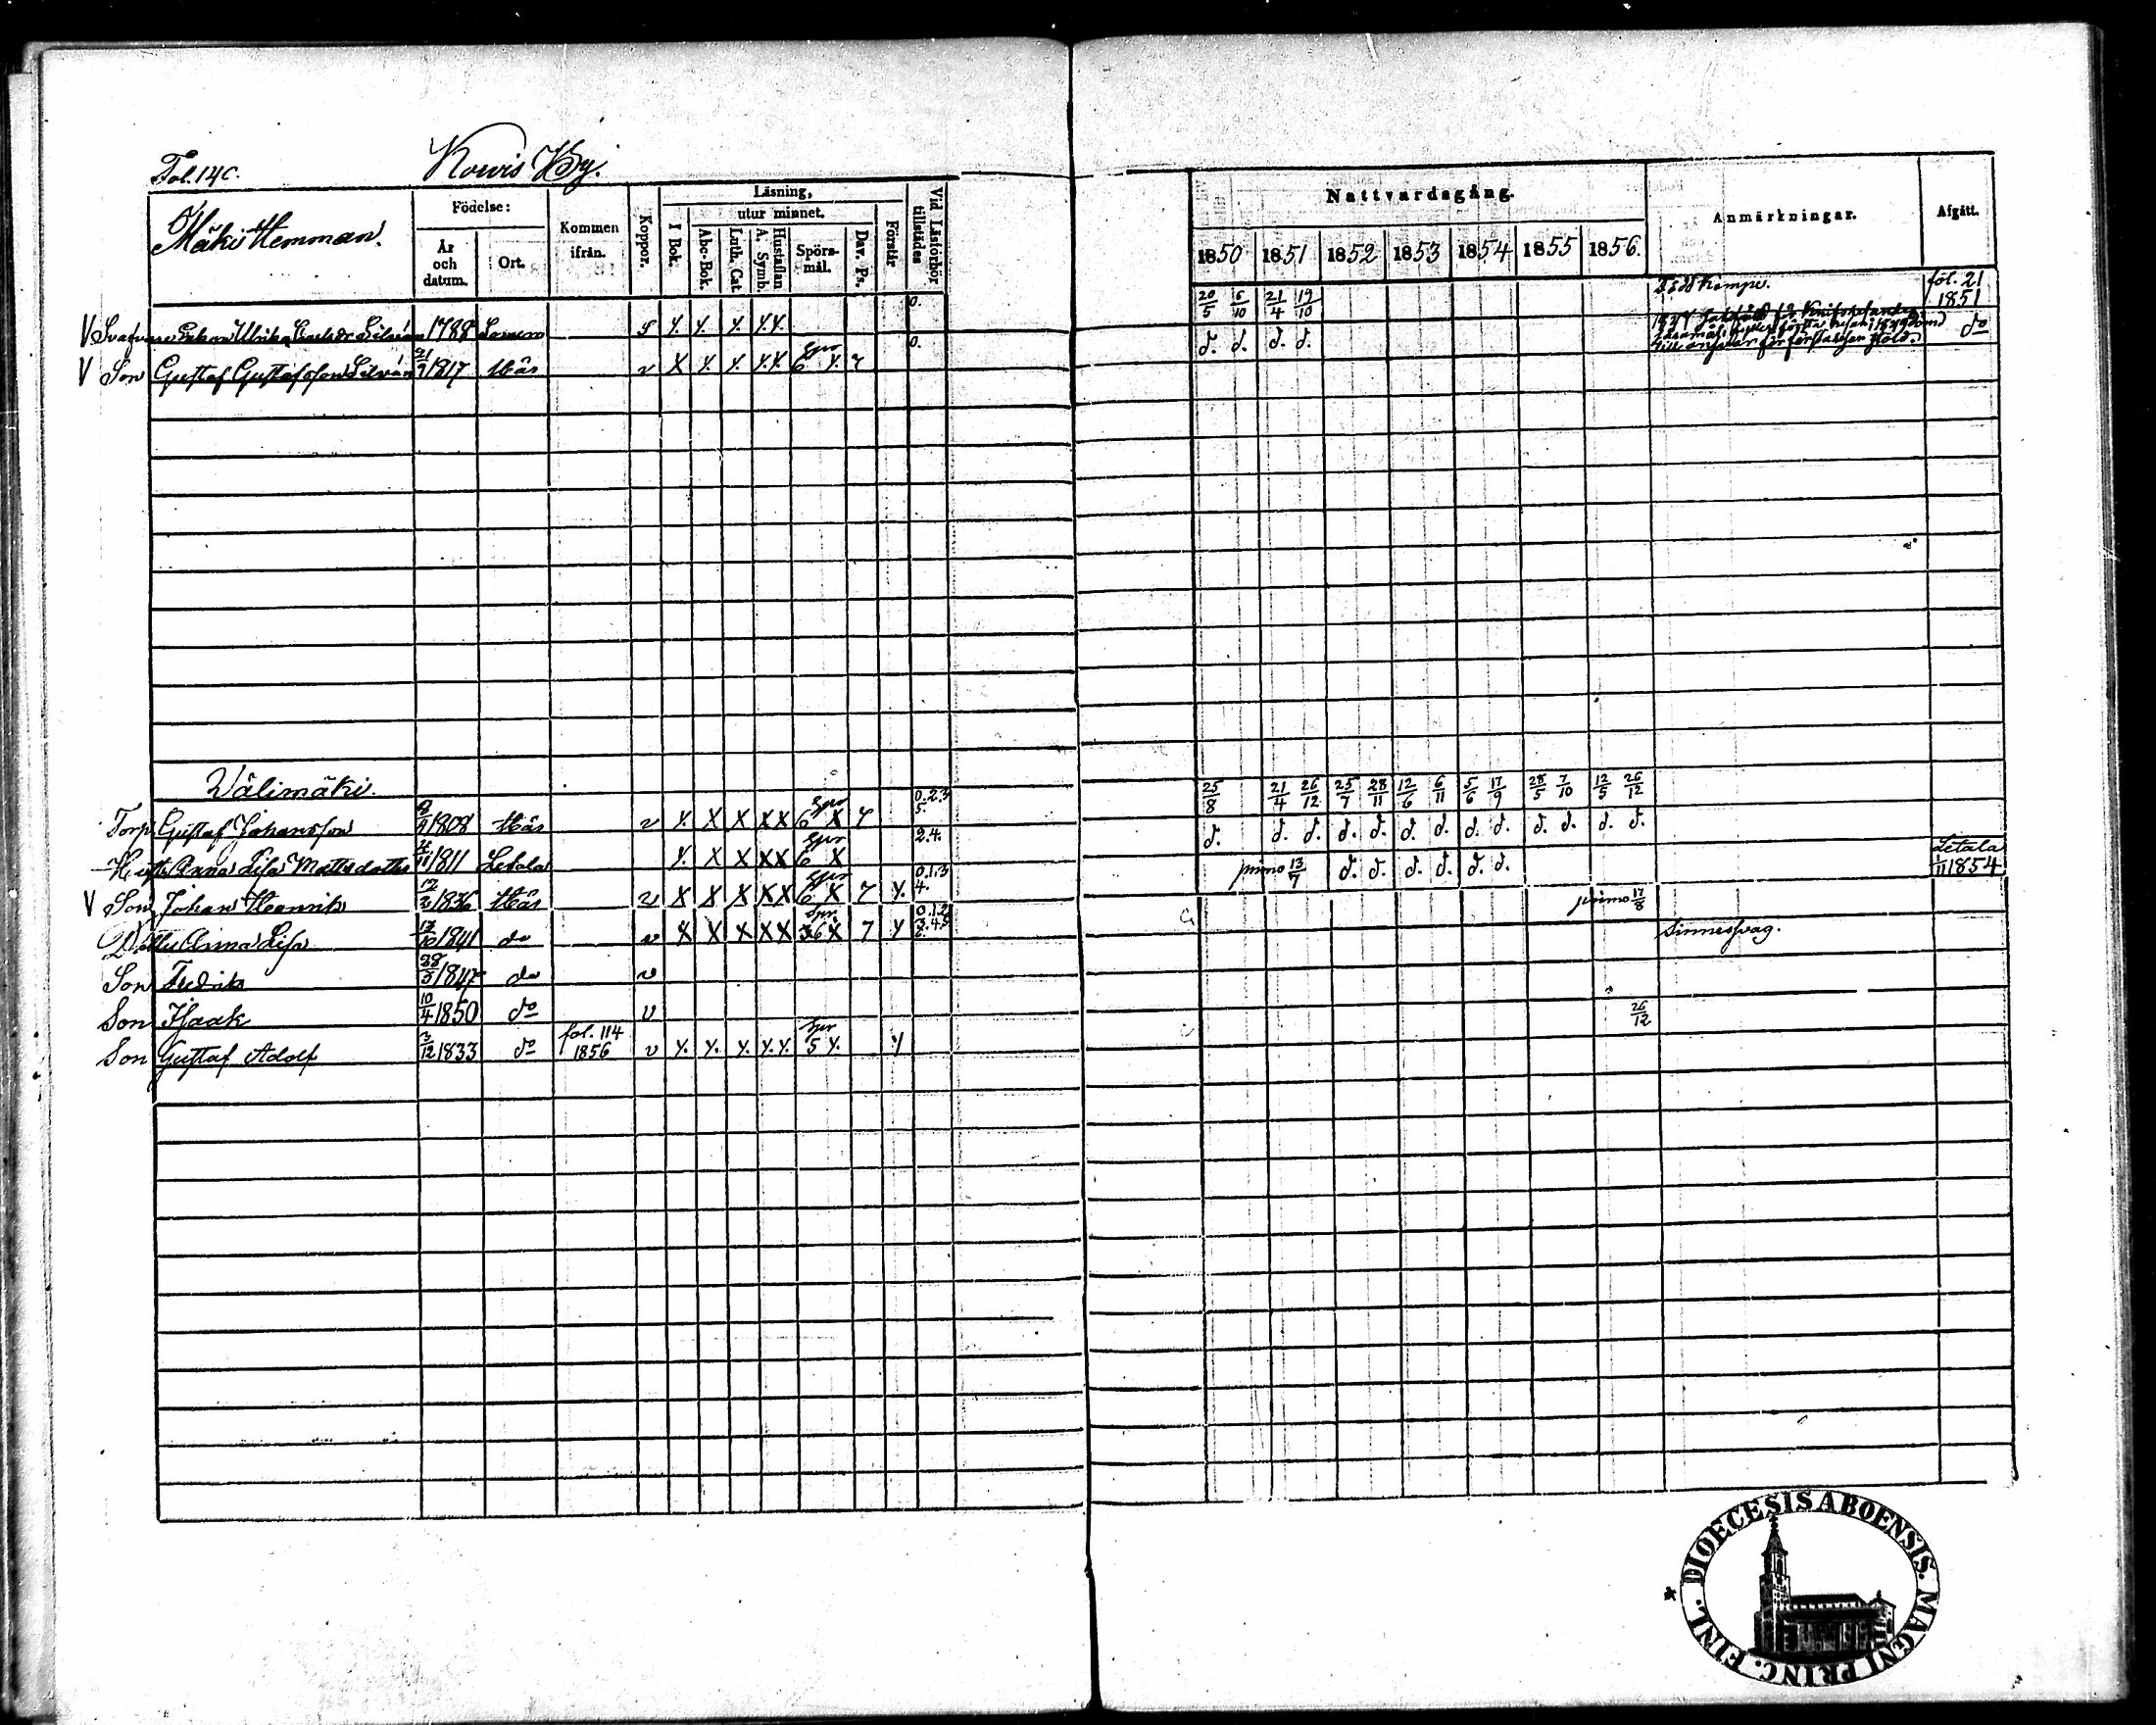 Fol. 140.
Kowis By.
Mäki Hemman.
Födelse:
År och datum.
Ort.
Kommen ifrån.
Koppor.
Läsning,
utur minnet.
I Bok.
Abc-Bok.
Luth. Cat.
A. Symb.
Hustaflan
Spörsmål.
Dav. Ps.
Förstår
Vid Läsförhör tillstädes
Nattvardsgång.
1850 1851 1852 1853 1854 1855 1856.
Anmärkningar.
Afgått.
0. 20/5 5/10 21/4 19/10 fol. 21 1851
V Ulrika 1788 Y. Y. Y. Y.Y. 0. d. d. d. d. do
V Son Gustaf Gustafsson 1817 Här v X Y. Y. Y.Y. Spr 6 Y. 7
Wälimäki. 0.2.3 5. 25/8 21/4 26/12 25/7 28/11 12/6 6/11 5/6 17/9 28/5 7/10 12/5 26/12
Torp. Gustaf Johansson 1808 Här v Y. X X X X Spr 6 X 7 2.4. d. d. d. d. d. d. d. d. d. d. d. d. d.
Hustru Anna Lisa Mattsdotter 4/11 1811 Letala Y. X X X X Spr 6 X 0.1.3 4. primo 13/7 d. d. d. d. d. d. Letala 1/11 1854
V Son Johan Henrik 12/2 1836 Här v X X X X X Spr 6 X 7 Y. 0.1.2 3.4.5 6. primo 17/8
Dotter Anna Lisa 13/10 1841 do v X X X X X Spr 36 X 7 Y Sinnessvag.
Son Fredrik 28/3 1847 do v
Son Isaak 10/4 1850 do v 26/12
Son Gustaf Adolf 3/12 1833 do fol. 114 1856 v Y. Y. Y. Y.Y. Spr 5 Y. Y
DIOECESIS ABOENSIS. MAGNI PRINC. FINL.